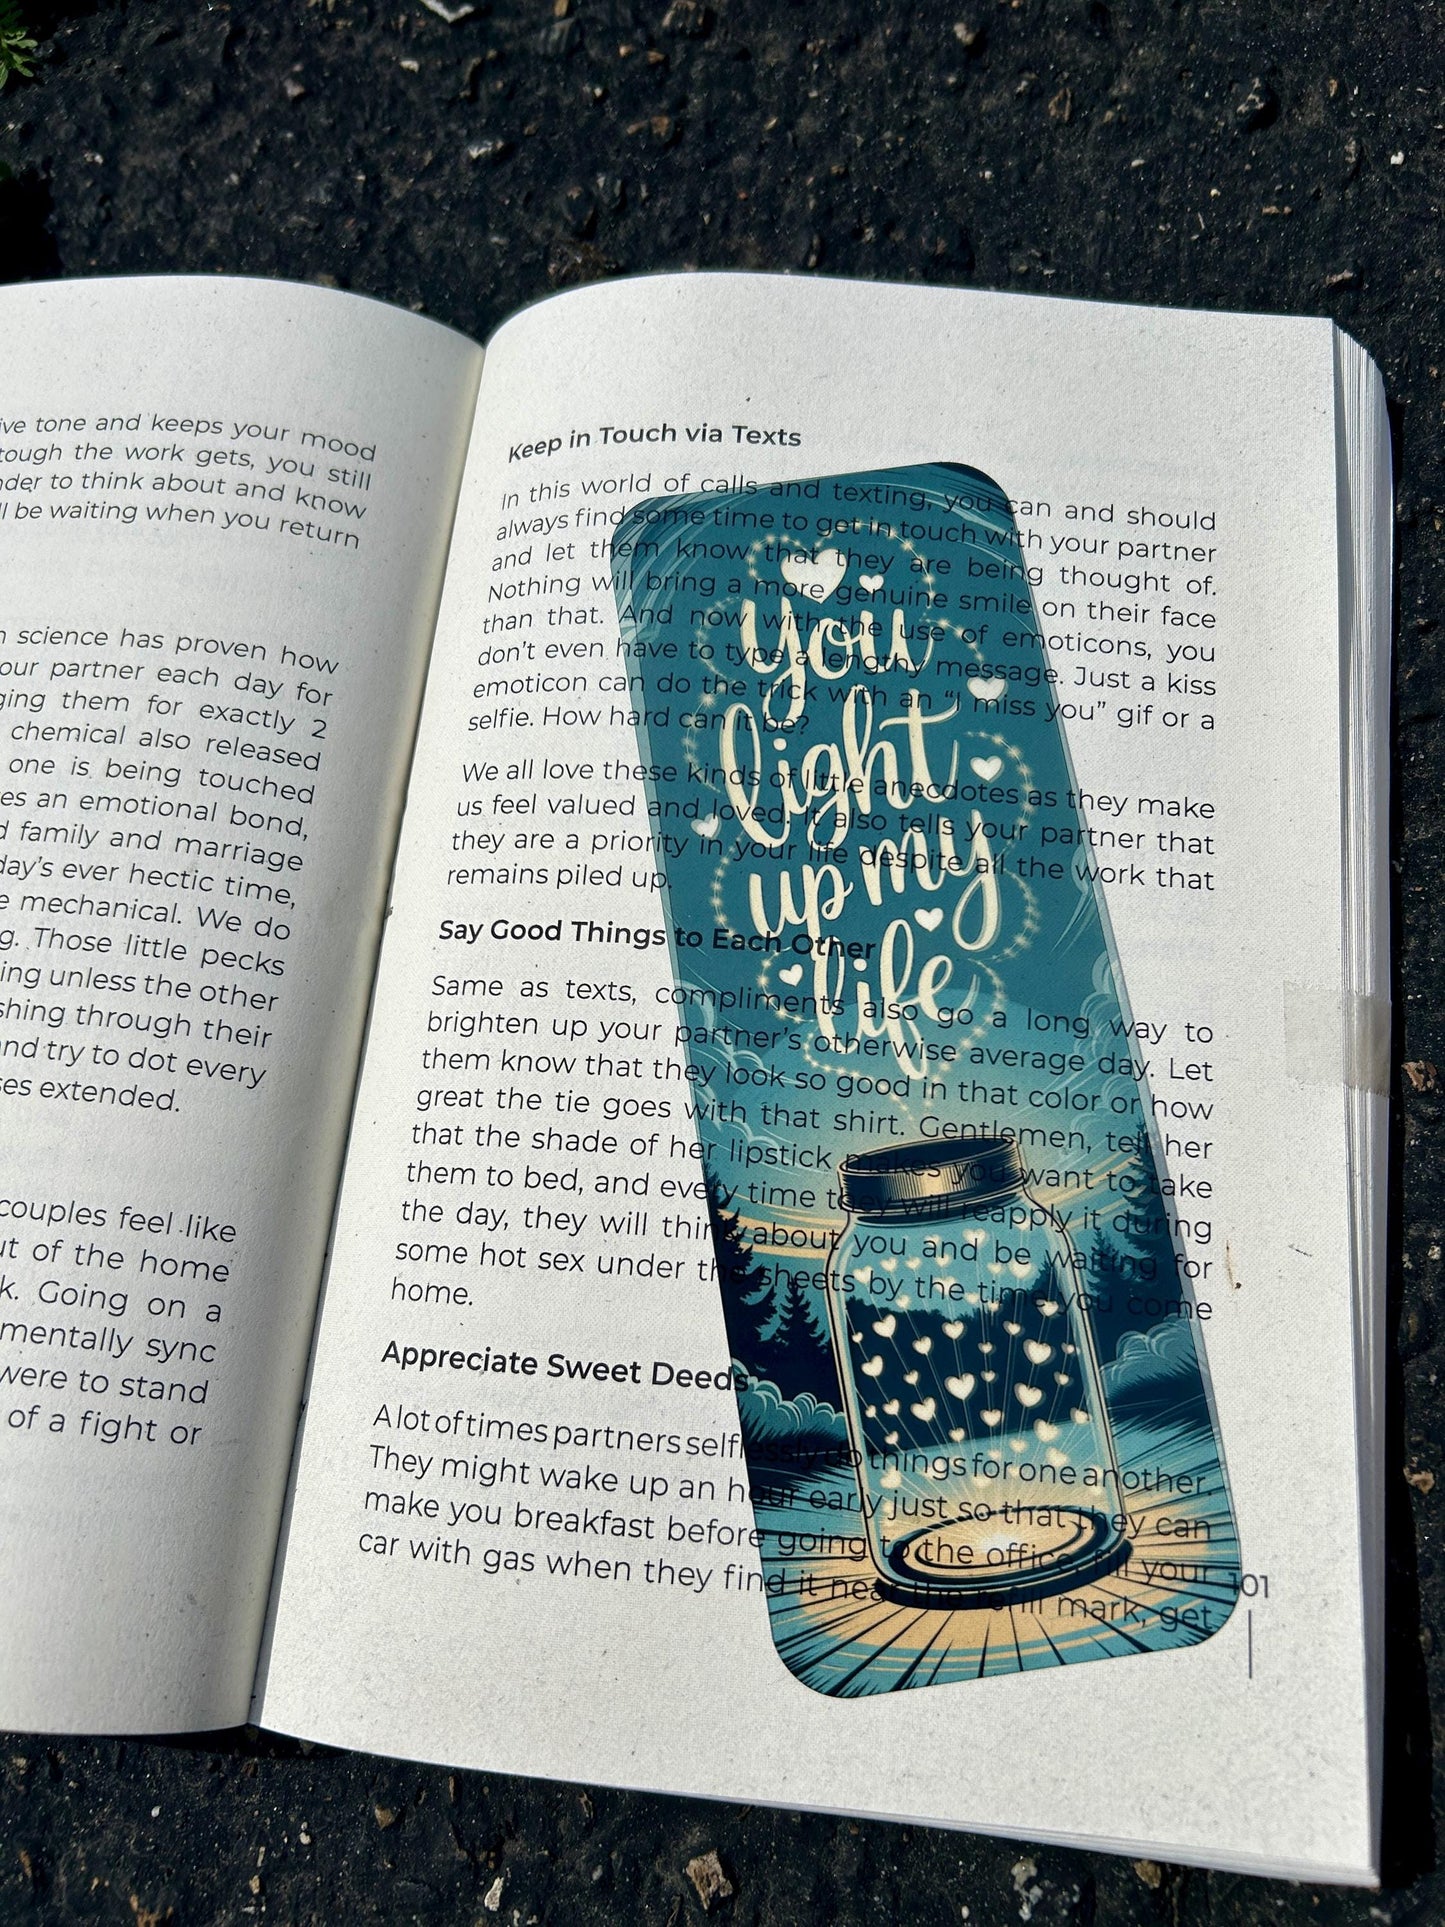 ive tone and keeps your mood
tough the work gets, you still
nder to think about and know
ll be waiting when you return
n science has proven how
our partner each day for
ging them for exactly 2
chemical also released
one is being touched
es an emotional bond,
d family and marriage
day's ever hectic time,
e mechanical. We do
g. Those little pecks
ing unless the other
shing through their
and try to dot every
ses extended.
couples feel like
ut of the home
k. Going on a
mentally sync
were to stand
of a fight or
Keep in Touch via Texts
In this world of calls and texting, you can and should
always find some time to get in touch with your partner
and let them know that they are being thought of.
Nothing will bring a more genuine smile on their face
than that. And now with the use of emoticons, you
don't even have to type a lengthy message. Just a kiss
emoticon can do the trick with an "I miss you" gif or a
selfie. How hard can it be?
We all love these kinds of little anecdotes as they make
us feel valued and loved. It also tells your partner that
they are a priority in your life despite all the work that
remains piled up.
Say Good Things to Each Other
Same as texts, compliments also go a long way to
brighten up your partner's otherwise average day. Let
them know that they look so good in that color or how
great the tie goes with that shirt. Gentlemen, tell her
that the shade of her lipstick makes you want to take
them to bed, and every time they will reapply it during
the day, they will think about you and be waiting for
some hot sex under the sheets by the time you come
home.
Appreciate Sweet Deeds
A lot of times partners selflessly do things for one another.
They might wake up an hour early just so that they can
make you breakfast before going to the office, fill your
car with gas when they find it near the refill mark, get
101
You
light
up my
life